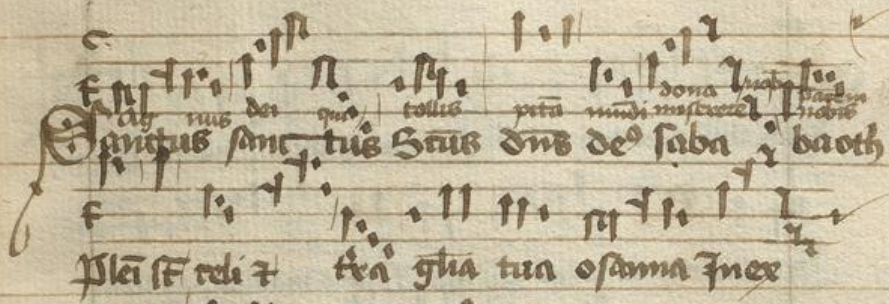 Ag nus dei qui tollis pctā mūdi miserere nobis
dona nobis pacem
Sanctus sanc tus Scūs dn̄s deꝰ saba baoth
Pleī sūt celi ⁊ t̄ra gl̄ia tua osanna In ex